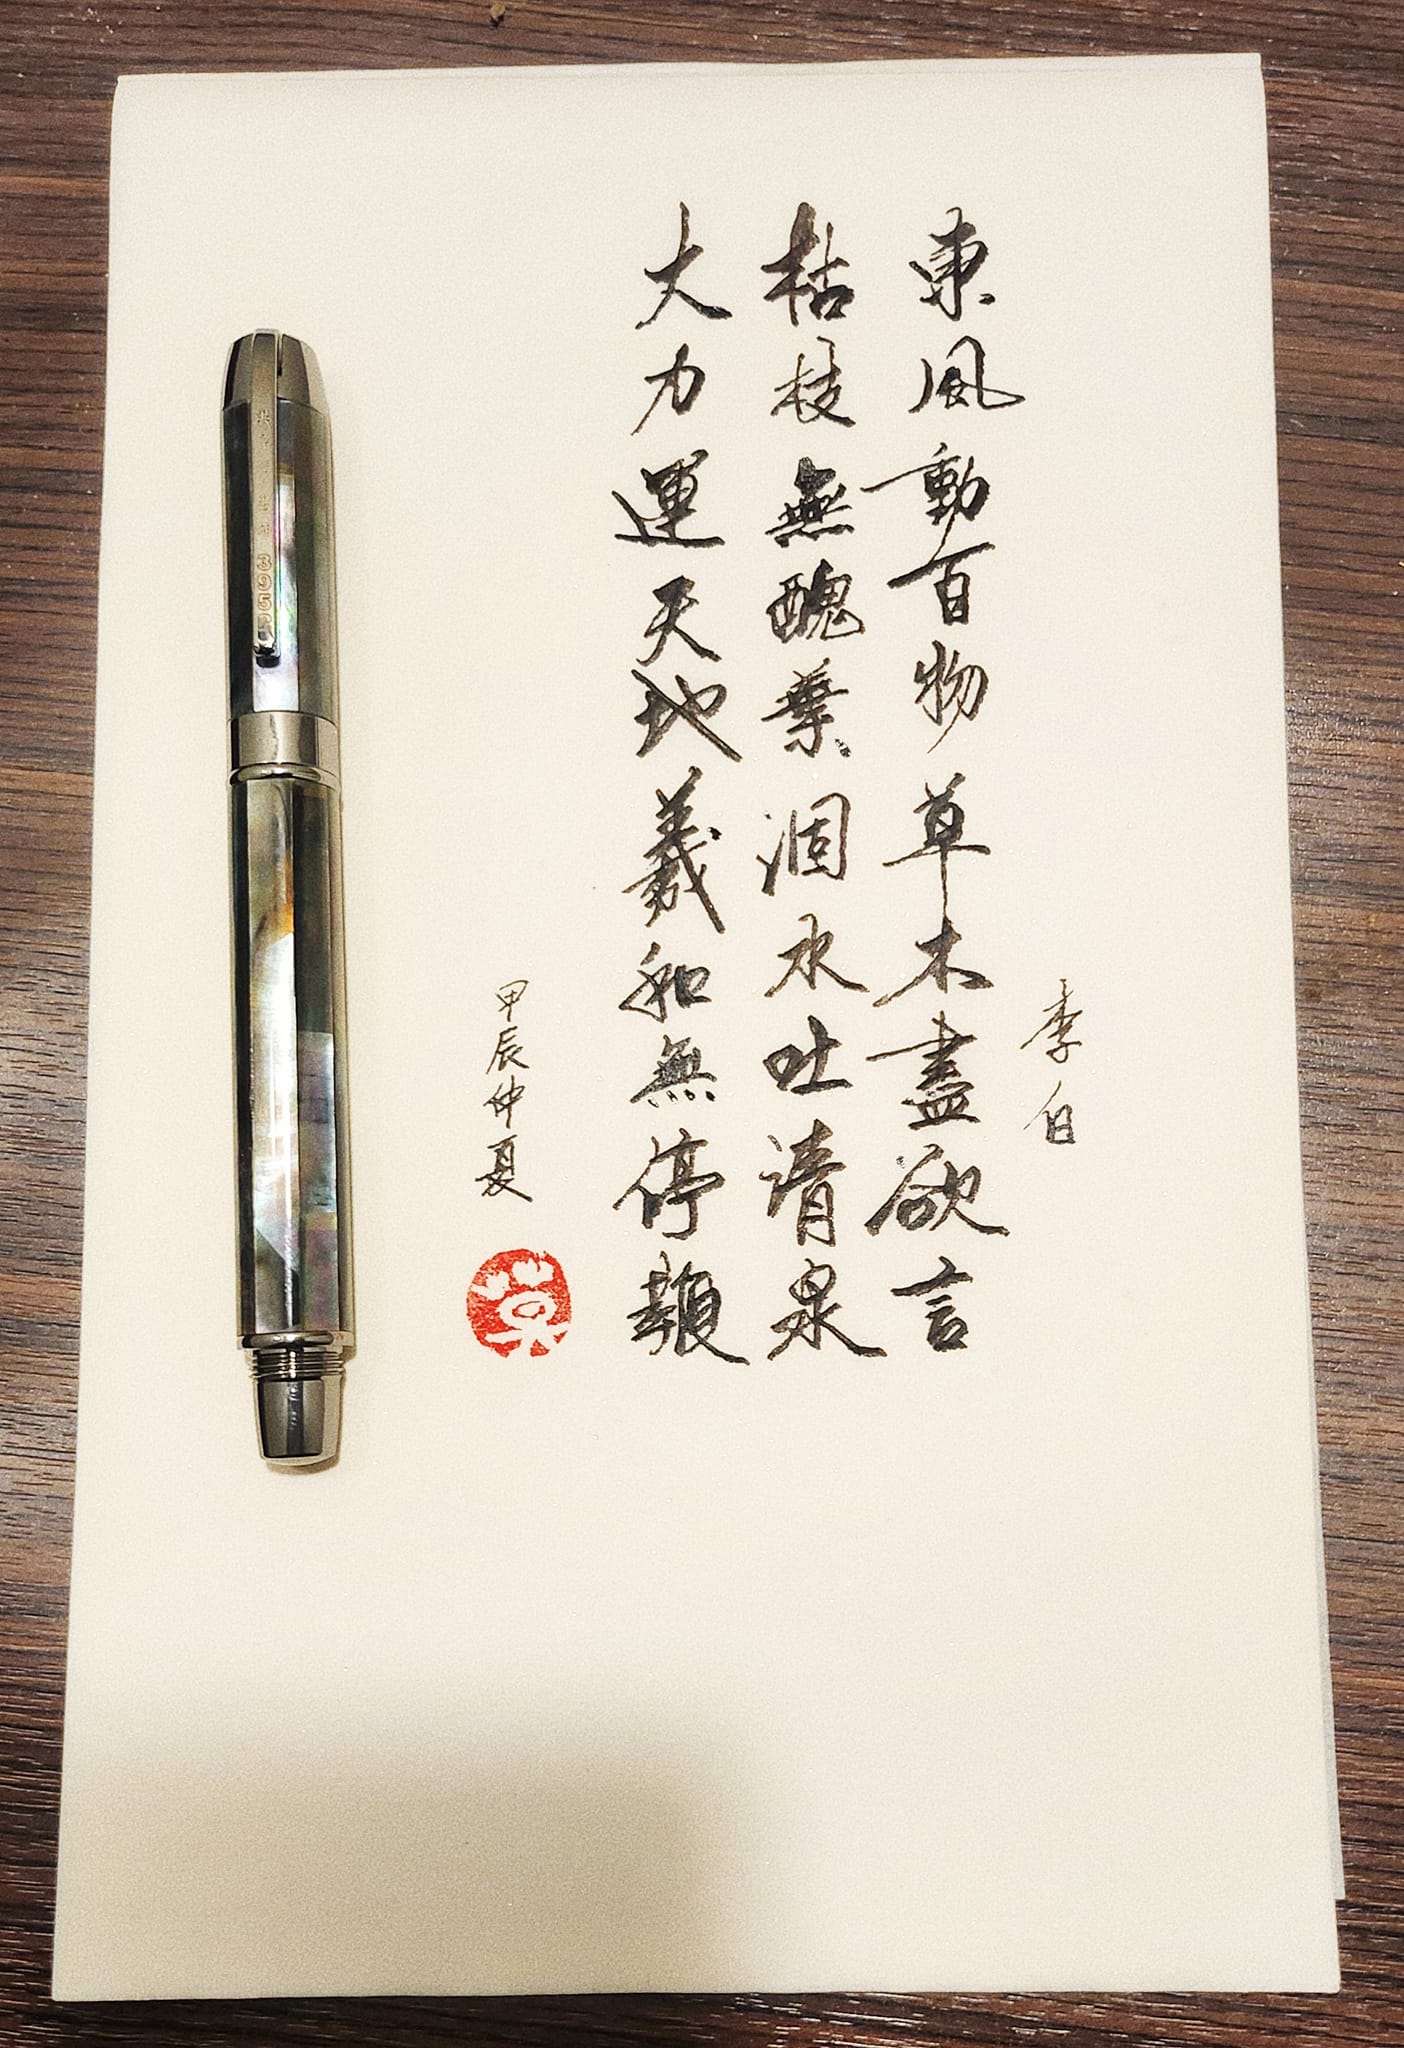 李白
東風動百物草木盡欲言
枯枝無醜葉涸水吐清泉
大力運天地羲和無停鞭
甲辰仲夏